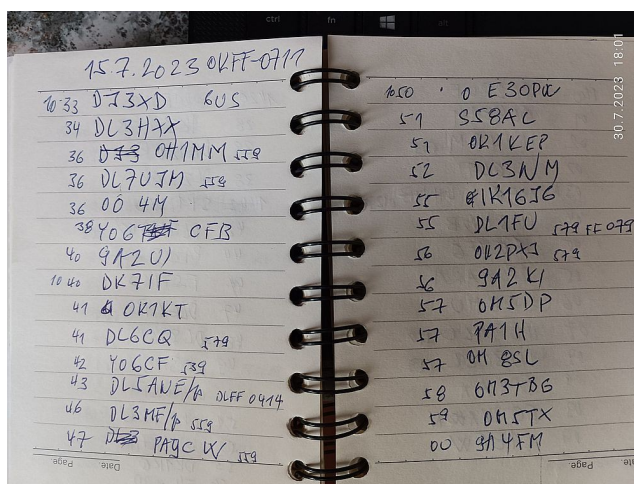 15.7.2023 OKFF-0711
10:33 DJ3XD GUS
34 DL3HXX
36 OH1MM 559
36 DL7UJM 559
36 OO4M
38 YO6 CFB
40 9A2U)
10 40 DK7IF
41 OK1KT
41 DL6CQ 579
42 YO6CF 539
43 DL5ANE/p DLFF 0414
46 DL3MF/p 559
47 PA9CW 559
Page Date
1050 OE30PU
51 S58AL
51 OK1KEP
52 DL3NM
55 IK1GJG
55 DL1FU 579 FF 079
56 OK2PXJ 579
56 9A2KI
57 OM5DP
57 PA1H
57 OM8SL
58 OM3TBG
59 OM5TX
00 9A4FM
Date Page
ctrl fn alt
30.7.2023 18:01